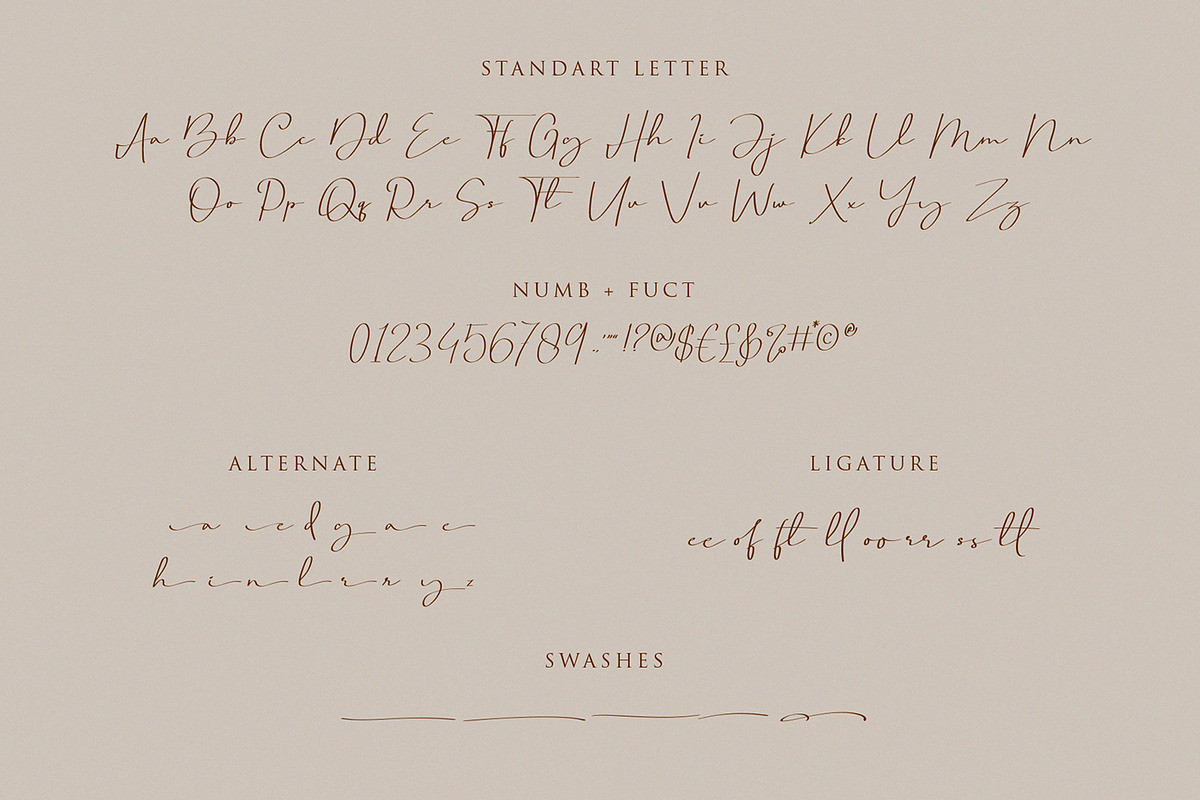 STANDART LETTER
Aa Bb Cc Dd Ee Ff Gg Hh Ii Jj Kk Ll Mm Nn
Oo Pp Qq Rr Ss Tt Uu Vv Ww Xx Yy Zz
NUMB + FUCT
0123456789.,'"“”!?@$€£&%#*©®
ALTERNATE
a e d g a e
h i n l r r y z
LIGATURE
ee of ft ll oo rr ss tt
SWASHES